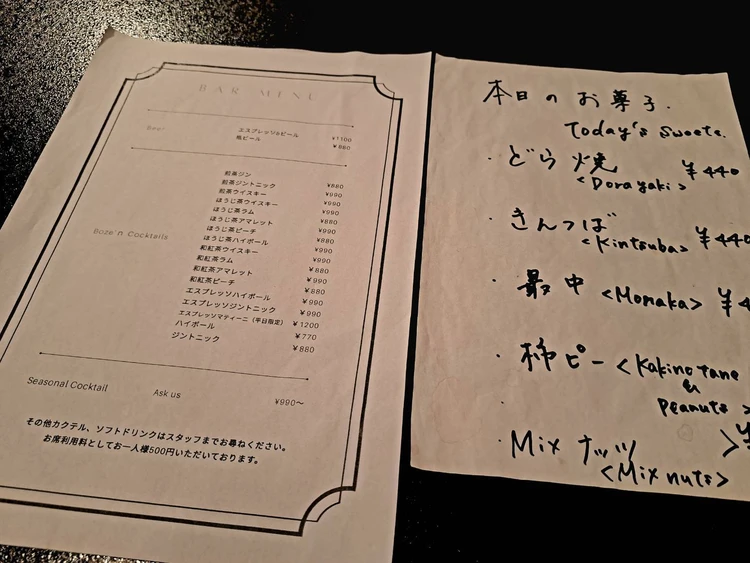 BAR MENU
Beer エスプレッソ&ビール ¥1100
瓶ビール ¥880
煎茶ジン ¥880
煎茶ジントニック ¥990
煎茶ウイスキー ¥990
ほうじ茶ウイスキー ¥990
ほうじ茶ラム ¥880
ほうじ茶アマレット ¥990
ほうじ茶ピーチ ¥880
ほうじ茶ハイボール ¥990
Boze'n Cocktails 和紅茶ウイスキー ¥990
和紅茶ラム ¥880
和紅茶アマレット ¥990
和紅茶ピーチ ¥880
エスプレッソハイボール ¥990
エスプレッソジントニック ¥990
エスプレッソマティーニ（平日限定） ¥1200
ハイボール ¥770
ジントニック ¥880
Seasonal Cocktail Ask us ¥990〜
その他カクテル、ソフトドリンクはスタッフまでお尋ねください。
お席利用料としてお一人様500円いただいております。
本日のお菓子.
Today's Sweets.
・どら焼 ¥440
<Dorayaki>
・きんつば ¥440
<Kintsuba>
・最中 <Monaka> ¥4
・柿ピー <Kakino tane
&
Peanuts>
・Mix ナッツ ¥
<Mix nuts>